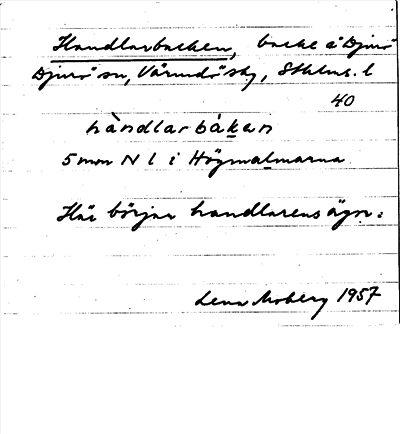 Handlarbacken, backe å Djurö
Djurö sn, Värmdö skg, Sthlms. l
40
hàndlarbákan
5 mm N l i Högmalmarna
Här börjar handlarens ägor.
Lena Moberg 1957